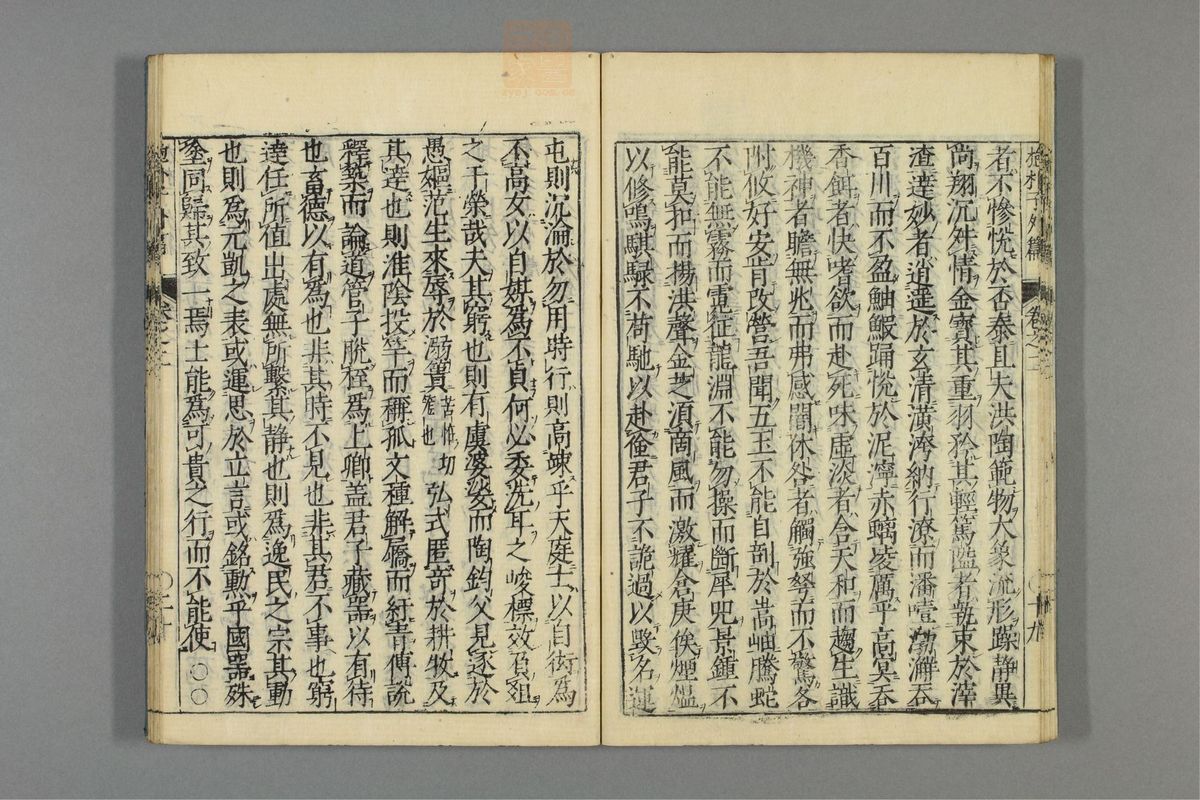 抱朴子外篇 卷之二 〇十九
者不慘悅於否泰且夫洪陶範物大象流形躁静異
尚翔沉舛情金寳其重羽矜其輕篤隘者執束於滓
渣達妙者逍遥於玄清潢洿納行潦而潘𡄣渤澥吞
百川而不盈鮋鰕踊悅於泥濘赤螭凌厲乎高冥吞
香餌者快嗜欲而赴死味虛淡者含天和而趨生識
機神者瞻無兆而弗惑闇休咎者觸強弩而不驚各
附攸好安肯改營吾聞五玉不能自剖於嵩岫騰蛇
不能無霧而電征龍淵不能勿操而斷犀兕景鍾不
能莫扣而揚洪聲金芝湏商風而激耀倉庚俟煙熅
以修鳴騏騄不苟馳以赴僉君子不詭過以毀名運
屯則沉淪於勿用時行則高竦乎天庭士以自衒為
不高女以自媒為不貞何必委洗耳之峻標效負俎
之干榮哉夫其窮也則有虞婆娑而陶鈞父見逐於
愚嫗范生來辱於溺簀 苦怪切 籠也 弘式匿竒於耕牧及
其達也則淮陰投竿而稱孤文種解屩而紆青傅說
釋築而論道管子脫桎為上卿盖君子藏器以有待
也畜德以有為也非其時不見也非其君不事也窮
達任所值出處無所繫其静也則為逸民之宗其動
也則為元凱之表或運思於立言或銘勲乎國器殊
塗同歸其致一焉士能為可貴之行而不能使〇〇
抱朴子外篇 卷之二 〇二十